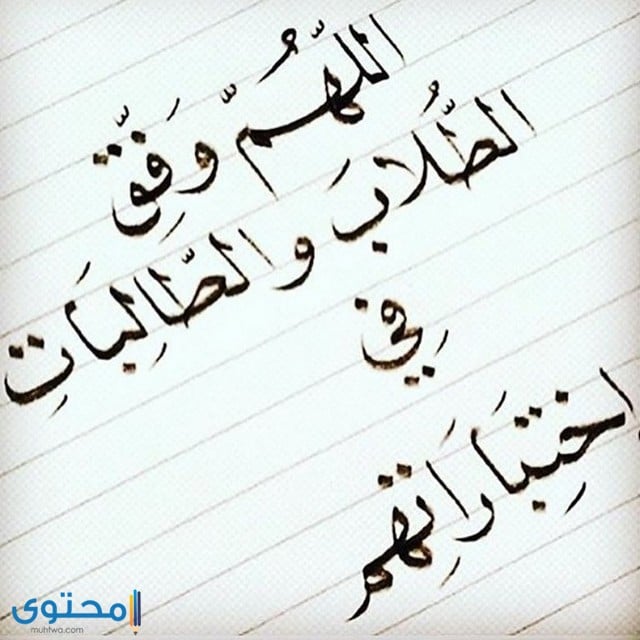 اللهُمَّ وَفِّق
الطُّلابَ والطَّالِبَاتِ
فِي
اختِبَارَاتِهم
محتوى
muhtwa.com